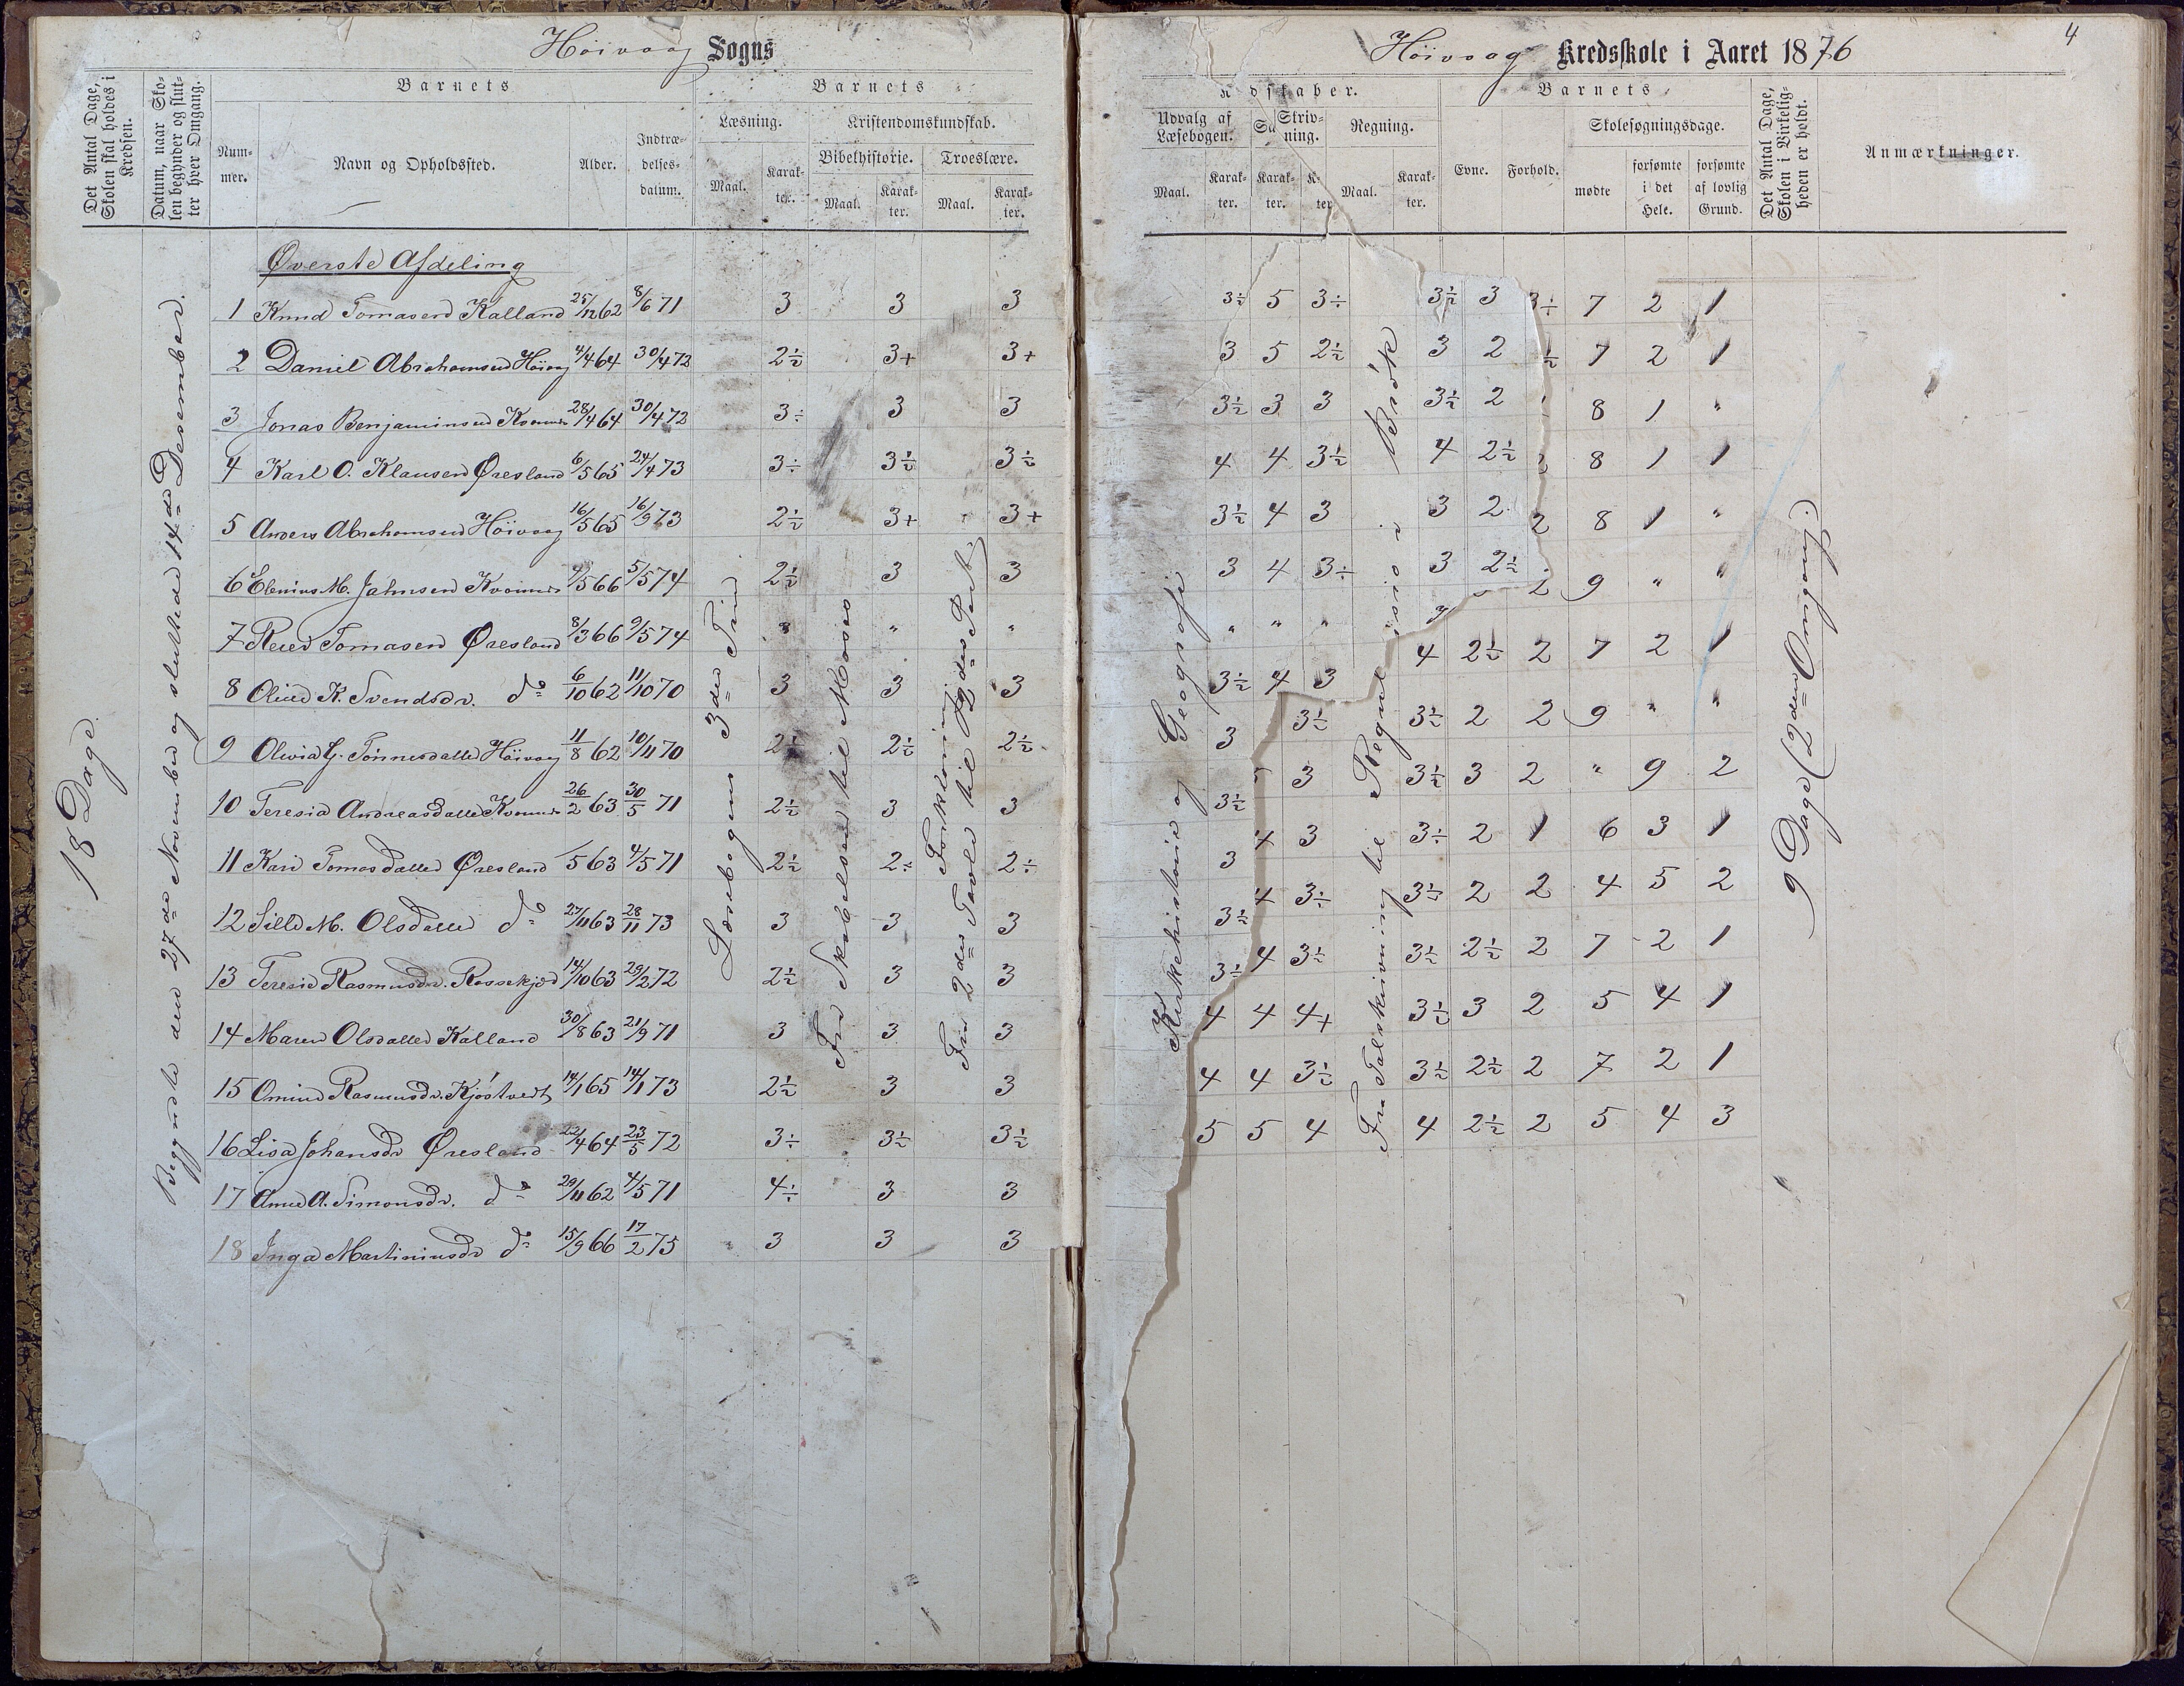 Høivaag Sogns
Det Antal Dage, Skolen skal holdes i Kredsen.
Datum, naar Skolen begynder og slutter hver Omgang.
Barnets
Nummer.
Navn og Opholdssted.
Alder.
Indtrædelsesdatum.
Barnets
Læsning.
Maal.
Karakter.
Kristendomskundskab.
Bibelhistorie.
Maal.
Karakter.
Troeslære.
Maal.
Karakter.
18 Dage.
Begyndte den 27de November og sluttede 14de Desember.
Øverste Afdeling
1 Knud Tomasen Kalland 25/12 62 8/6 71 3 3 3
2 Daniel Abrahamsen Høivaag 4/4 64 30/4 72 2½ 3+ 3+
3 Jonas Benjaminsen 28/4 64 30/4 72 3÷ 3 3
4 Karl O. Klausen Øresland 6/5 65 24/4 73 3÷ 3½ 3½
5 Anders Abrahamsen Høivaag 16/5 65 16/9 73 2½ 3+ 3+
6 Elenius M. Jahnsen /5 66 5/5 74 2½ 3 3
7 Reier Tomasen Øresland 8/3 66 9/5 74 " " "
8 K. Svendsdr. do 6/10 62 11/10 70 3 3 3
9 Olevia G. Tønnesdatter Høivaag 11/8 62 10/11 70 2½ 2½ 2½
10 Teresia Andreasdatter 26/2 63 30/5 71 2½ 3 3
11 Kari Tomasdatter Øresland /5 63 4/5 71 2½ 2÷ 2÷
12 Sille M. Olsdatter do 27/11 63 28/11 73 3 3 3
13 Teresie Rasmusdr. 14/10 63 29/2 72 2½ 3 3
14 Maren Olsdatter Kalland 30/8 63 21/9 71 3 3 3
15 Rasmusdr. Kjøstvedt 14/1 65 14/1 73 2½ 3 3
16 Lisa Johansdr Øresland 22/4 64 23/5 72 3÷ 3½ 3½
17 Anne A. Simonsdr. do 29/11 62 4/5 71 4÷ 3 3
18 Inga Martiniusdr do 15/9 66 17/2 75 3 3 3
Læsebogens 3die Trin
Fra Skabelsen til Moses
Forklaring
Fra 2den Tavle til 2den Part.
4
Høivaag Kredsskole i Aaret 1876
dskaber.
Udvalg af Læsebogen.
Maal.
Karakter.
Sa
Karakter.
Skrivning.
K
ter
Regning.
Maal.
Karakter.
Barnets
Evne.
Forhold.
Skolesøgningsdage.
mødte
forsømte i det Hele.
forsømte af lovlig Grund.
Det Antal Dage, Skolen i Virkeligheden er holdt.
Anmærkninger.
3½ 5 3÷ 3½ 3 3÷ 7 2 1
3 5 2½ 3 2 ½ 7 2 1
3½ 3 3 3½ 2 8 1 "
4 4 3½ 4 2½ 8 1 1
3½ 4 3 3 2 2 8 1 "
3 4 3÷ 3 2½ 2 9 " "
" " " 4 2½ 2 7 2 1
3½ 4 3
3 3½ 3½ 2 2 9 " "
3½ 3 3½ 3 2 " 9 2
3 4 3 3÷ 2 1 6 3 1
3½ 4 3÷ 3½ 2 2 4 5 2
3÷ 4 3½ 3½ 2½ 2 7 2 1
4 4 4+ 3½ 3 2 5 4 1
4 4 3½ 3½ 2½ 2 7 2 1
5 5 4 4 2½ 2 5 4 3
Kirkehistorie og Geografi
Fra Talskrivning til i Brøk
9 Dage (2den Omgang.)